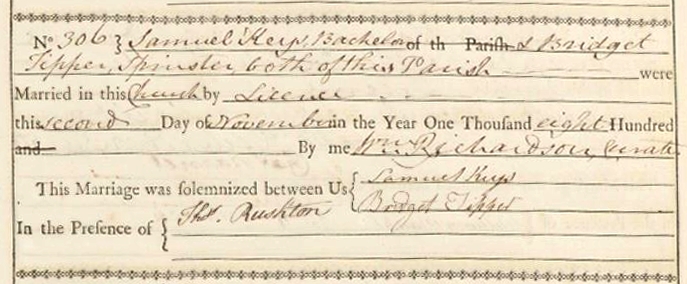 No 306 } Samuel Keys, Bachelor of th Parish & Bridget
Tipper, Spinster, both of this Parish were
Married in this Church by Licence
this second Day of November in the Year One Thousand eight Hundred
and By me Wm. Richardson, Curate
This Marriage was solemnized between Us { Samuel Keys
Bridget Tipper
In the Presence of { Thos. Rushton